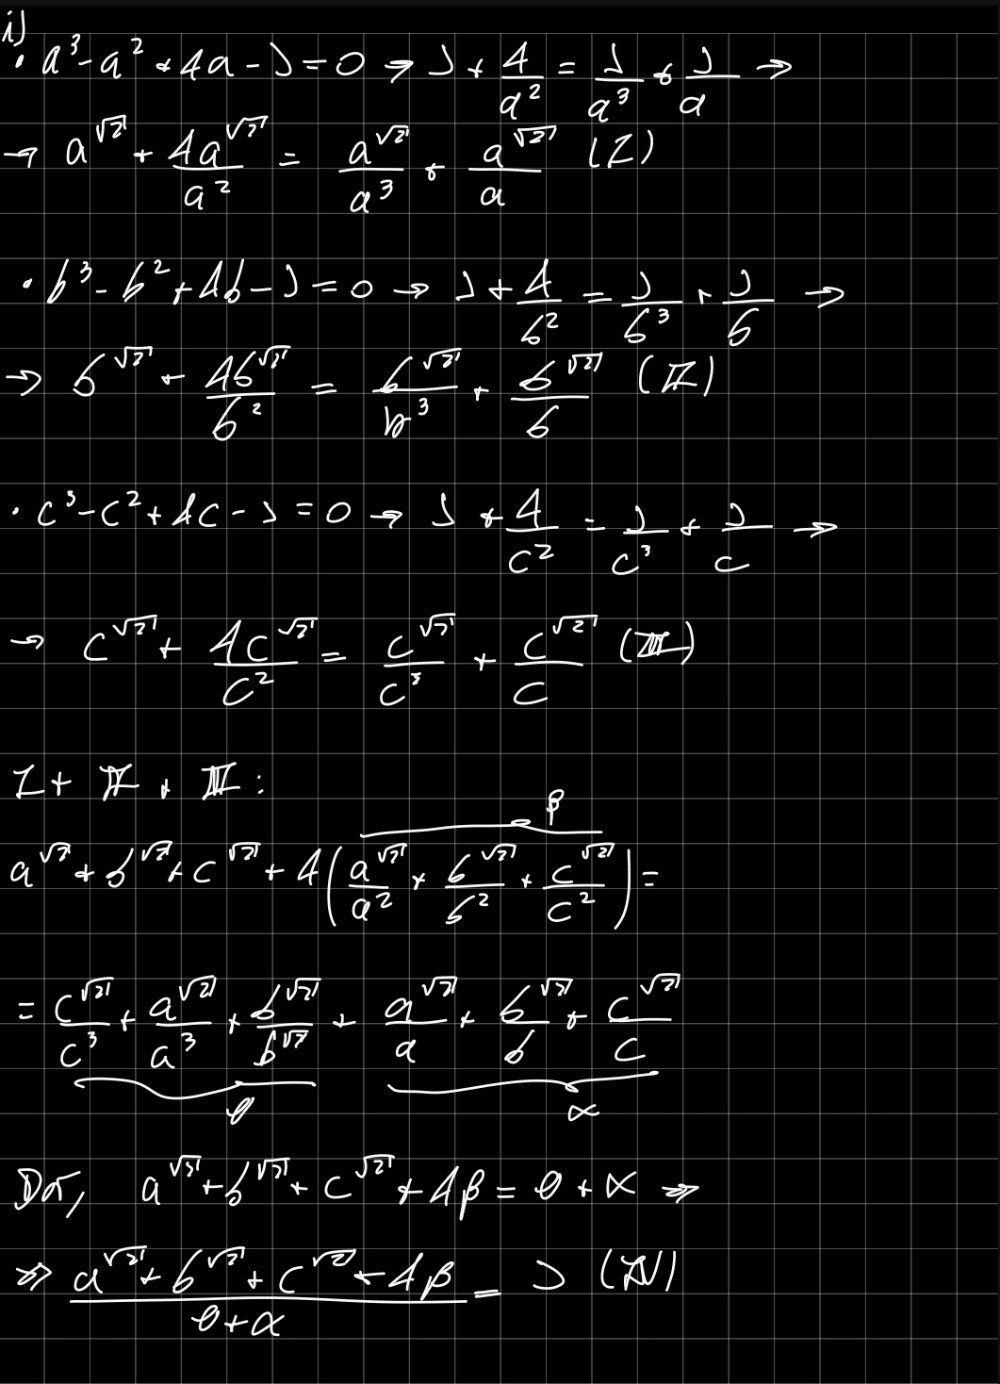 i)
• a³ - a² + 4a - 1 = 0 → 1 + 4/a² = 1/a³ + 1/a →
→ a^√2 + 4a^√2/a² = a^√2/a³ + a^√2/a (I)
• b³ - b² + 4b - 1 = 0 → 1 + 4/b² = 1/b³ + 1/b →
→ b^√2 + 4b^√2/b² = b^√2/b³ + b^√2/b (II)
• c³ - c² + 4c - 1 = 0 → 1 + 4/c² = 1/c³ + 1/c →
→ c^√2 + 4c^√2/c² = c^√2/c³ + c^√2/c (III)
I + II + III:
β
a^√2 + b^√2 + c^√2 + 4(a^√2/a² + b^√2/b² + c^√2/c²) =
= c^√2/c³ + a^√2/a³ + b^√2/b^√2 + a^√2/a + b^√2/b + c^√2/c
θ α
Daí, a^√2 + b^√2 + c^√2 + 4β = θ + α ⇒
⇒ (a^√2 + b^√2 + c^√2 + 4β)/(θ + α) = 1 (IV)